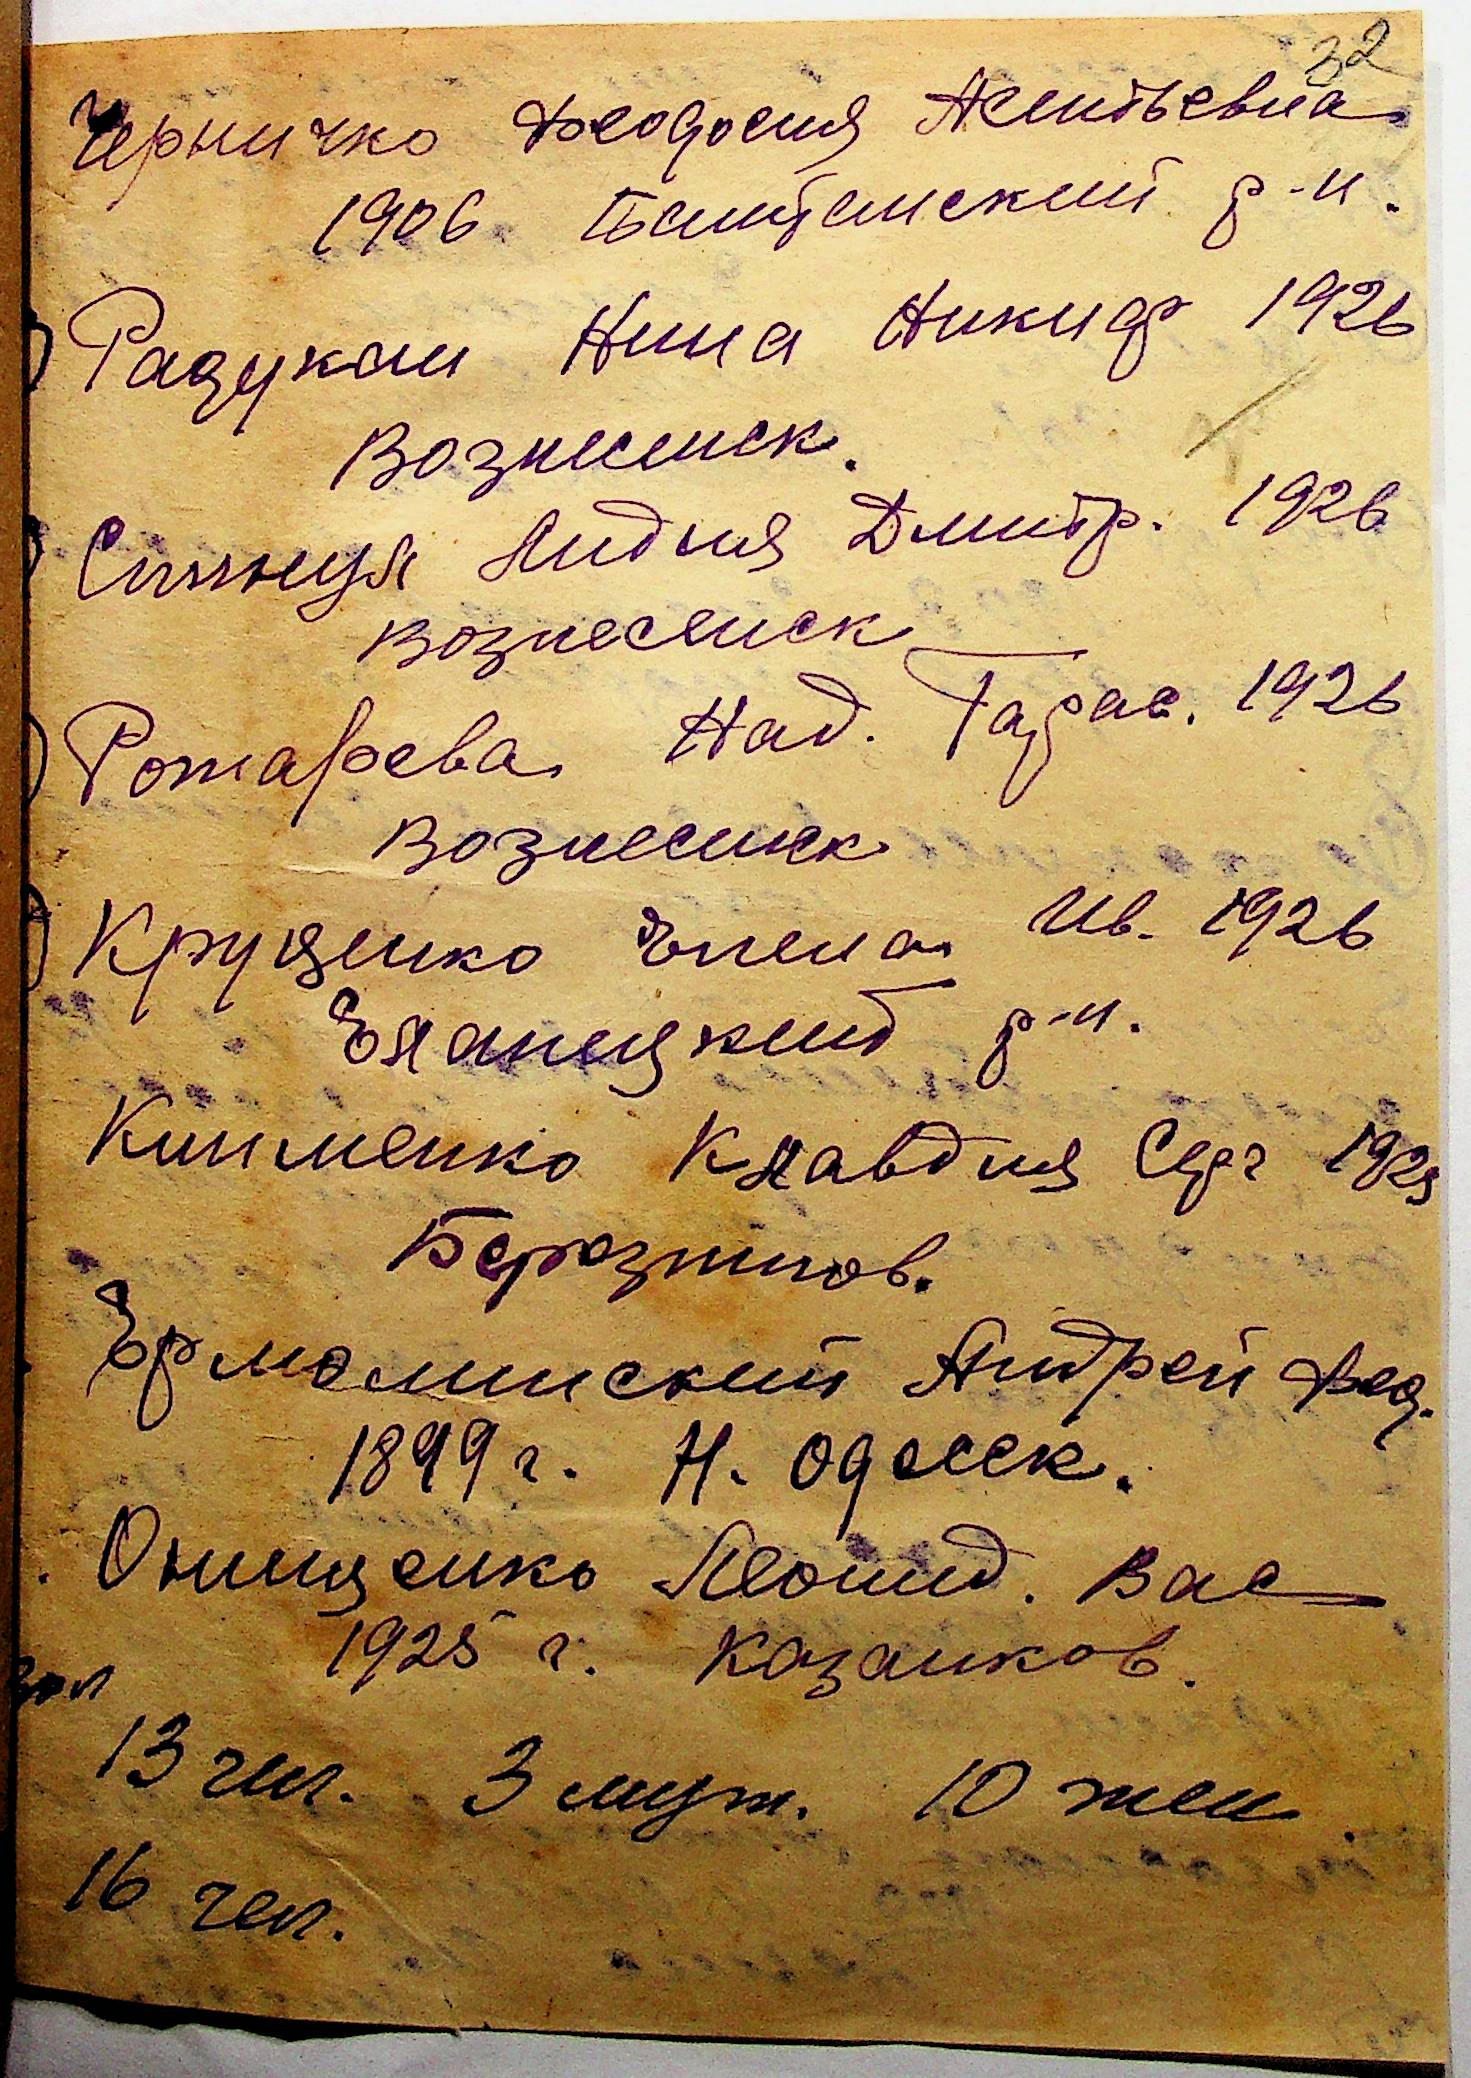 32
Черничко Феодосия Леонтьевна
1906 Баштанский р-н.
Радукан Нина Никиф 1926
Вознесенск.
Лидия Дмитр. 1926
Вознесенск
Рожарева Над. Тарас. 1926
Вознесенск
Крущенко Елена Ив. 1926
Еланецкий р-н.
Клименко Клавдия Серг 1925
Березнигов.
Ермолинский Андрей Фед.
1899 г. Н. Одесск.
Онищенко Леонид. Вас
1925 г. Казанков.
13 чел. 3 муж. 10 жен.
16 чел.